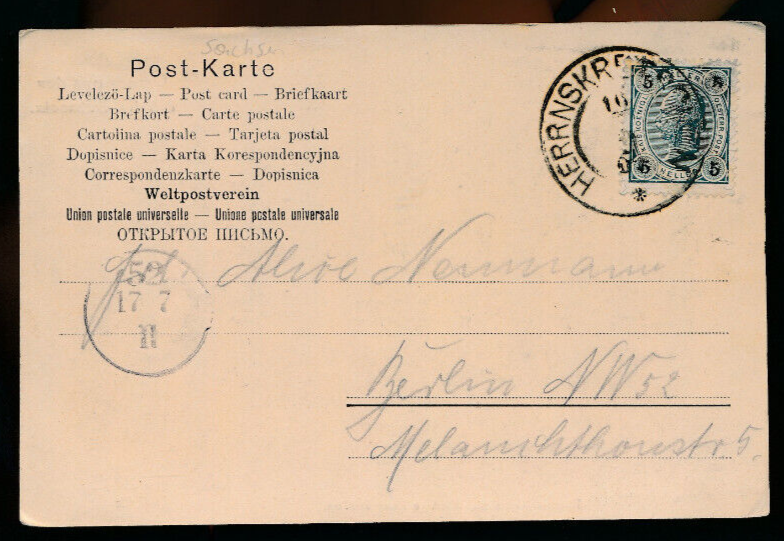 Sachsen
Post-Karte
Levelező-Lap — Post card — Briefkaart
Brefkort — Carte postale
Cartolina postale — Tarjeta postal
Dopisnice — Karta Korespondencyjna
Correspondenzkarte — Dopisnica
Weltpostverein
Union postale universelle — Unione postale universale
ОТКРЫТОЕ ПИСЬМО.
HERRNSKRE
5 5
5 5
Alice Neumann
17 7
Berlin NW 52
Melanchthonstr. 5.